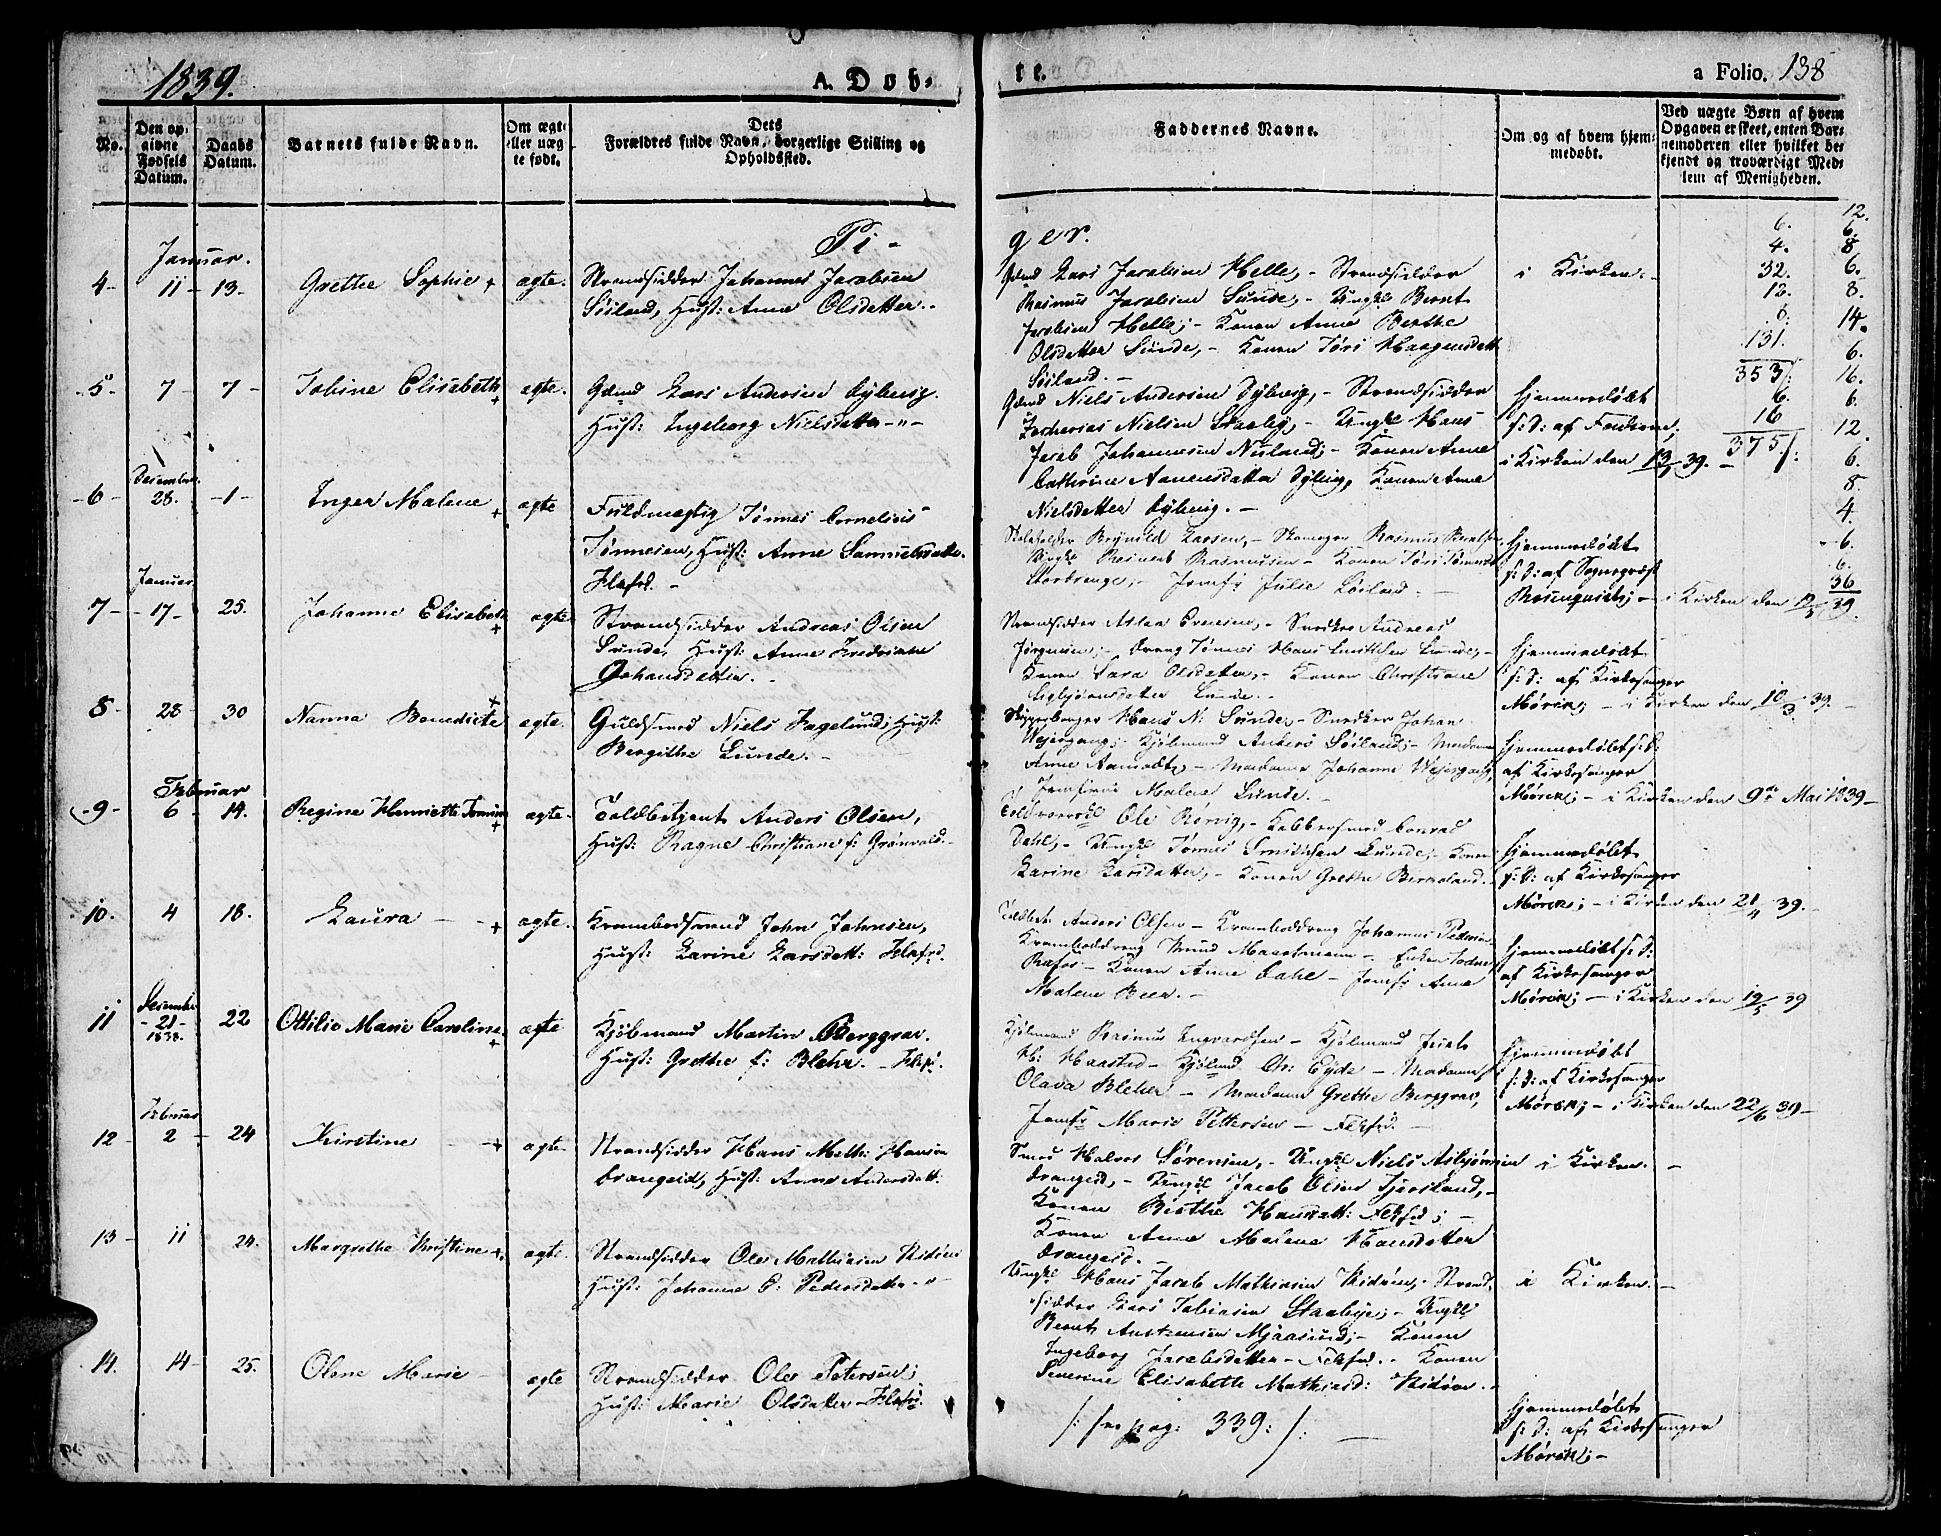 1839.
A. Døb-
tt.
a Folio. 138
No.
Den op-
givne
Fødsels
Datum.
Daabs
Datum.
Barnets fulde Navn.
Om ægte
eller uæg-
te født.
Dets
Forældres fulde Navn, borgerlige Stilling og
Opholdssted.
Faddernes Navne.
Om og af hvem hjem-
medøbt.
Ved uægte Børn af hvem
Opgaven er skeet, enten Bar-
nemoderen eller hvilket be-
kjendt og troværdigt Med-
lem af Menigheden.
Pi-
ger.
Januar.
4- 11- 13- Grethe Sophie + ægte. Strandsidder Johannes Jacobsen
Søiland, Hust: Anne Olsdatter.-
Gdmd Lars Jacobsen Helle,- Strandsidder
Rasmus Jacobsen Lunde,- Ungkl Bernt
Jacobsen Helle;- Konen Anne Berthe
Olsdatter Lunde,- Konen Tøri Haagensdatt
Søiland.-
i Kirken.-
5- 7- 7- Tobine Elisabeth + ægte. Gdmd Lars Andersen Dybvig.
Hust: Ingeborg Nielsdatter-"-
Gdmd Niels Andersen Dybvig,- Strandsidder
Zacharias Nielsen Staaby,- Ungkl Hans
Jacob Johannesen Nisland;- Konen Anne
Cathrine Aanensdatter Dybvig, Konen Anne
Nielsdatter Dybvig.-
hjemmedøbt
f: D: af Faderen;
i Kirken den 13/ 39.-
Decembr.
6- 28. -1- Inger Malene + ægte Fuldmægtig Tønnes Cornelius
Tønnesen, Hust: Anne Samuelsdatter
Flekfd.-
Rasmus
Konen Tøri
Jomfr Julie Søiland.-
hjemmedøbt
f: D: af Sognepræst
Rosenqvist;- i Kirken den 12/5 39.
Januar
7- -17- 25. Johanne Elisabeth + ægte Strandsidder Andreas Olsen
Lunde, Hust: Anne Fredrikke
Johansdatter.-
Strandsidder Aslan Evensen,- Snedker Andreas
Jørgensen;- Dreng Tønnes Hans Smithsen Lunde,-
Konen Sara Olsdatter,- Konen Christiane
Lunde.-
hjemmedøbt
f: D: af Kirkesanger
Mørck;- i Kirken den 10/3 39.-
8- 28- 30 Nanna Benedicte + ægte. Guldsmed Niels Fagelund, Hust:
Bergithe Lunde.-
Hans N: Lunde,- Snedker Johan
Wejergang;- Kjøbmand Anders Søiland;- Madame
Anne Aamodt,- Madame Johanne Wejergang,
Jomfrue Malene Lunde.-
hjemmedøbt f: D:
af Kirkesanger
Mørck;- i Kirken den 9de Mai 1839-
Februar
9- 6- 14. Regine Henriette + ægte. Toldbetjent Anders Olsen,
Hust: Ragne Christiane f: Grønvold.-
Ole Rørvig,- Kobbersmed Conrad
Dahl,- Ungkl Tønnes Smithsen Lunde,- Konen
Karine Larsdatter,- Konen Grethe Birkeland.-
hjemmedøbt
f: D: af Kirkesanger
Mørck;- i Kirken den 21/4 39.-
10. 4 18. Laura - + ægte. Krambodsvend John Johnsen,
Hust: Karine Larsdatt: Flekfd.
Toldbet: Anders Olsen- Kramboddreng Johannes Pedersen
Krambodreng Knud Maaselmann-
Rafos- Konen Anne Dahl- Jomfr Anne
Malene Beer.-
hjemmedøbt f: D:
af Kirkesanger
Mørck;- i Kirken den 12/5 39
Decembr
11 -21- 1838. 22 Ottilie Marie Caroline + ægte Kjøbmand Martin Berggrav.
Hust: Grethe f: Blehr.- Flekf.
Kjøbmand Rasmus Ingvardsen- Kjøbmand Jacob
H: Haarsted- Kjøbmd Chr: Eyde- Madame
Olava Blehr- Madame Grethe Berggrav,
Jomfr Marie Pettersen- Flekfd.-
hjemmedøbt
f: D: af Kirkesanger
Mørck;- i Kirken den 22/6 39-
Februar
12- 2- 24 Kirstine - + ægte. Strandsidder Hans Math: Hansen
Drangeid, Hust: Anne Andersdatt:
Smed Halvor Sørensen,- Ungkl Niels Asbjørnsen
Drangeid,- Ungkl Jacob Olsen Tjørsland,-
Konen Berthe Hansdatt: Flekfd;-
Konen Anne Malene Hansdatter
Drangeid.-
i Kirken.-
13- 11 24. Margrethe Kristine + ægte. Strandsidder Ole Mathiasen Hidøen
Hust: Johanne E: Pedersdatter-"-
Ungkl Hans Jacob Mathiasen Hidøen,- Strand-
sidder Lars Tobiasen Staabye;- Ungkl
Bernt Austensen Mjaasund;- Konen
Ingeborg Jacobsdatter- Flekfd.- Konen
Severine Elisabethe Mathiasd: Hidøen.-
i Kirken.-
14. 14- 25. Olene Marie- ægte Strandsidder Ole Petersen;
Hust: Marie Olsdatter- Flekfd.
/: see pag: 339: /:
hjemmedøbt
f: D: af Kirkesanger
Mørck;-
6.
4.
32.
12.
8.
131.
353/:
6.
16
375/:
12.
6.
8.
6.
8.
14.
6.
16.
6.
12.
6.
8.
4.
6.
6.
36